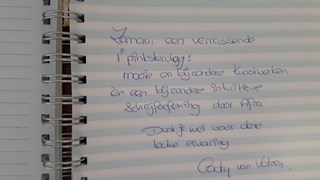 Zomaar een verrassende
1e pinksterdag:
mooie en bijzondere kunstwerken
èn een bijzondere intuïtieve
schrijfoefening door
Dank je wel voor deze
leuke ervaring
van